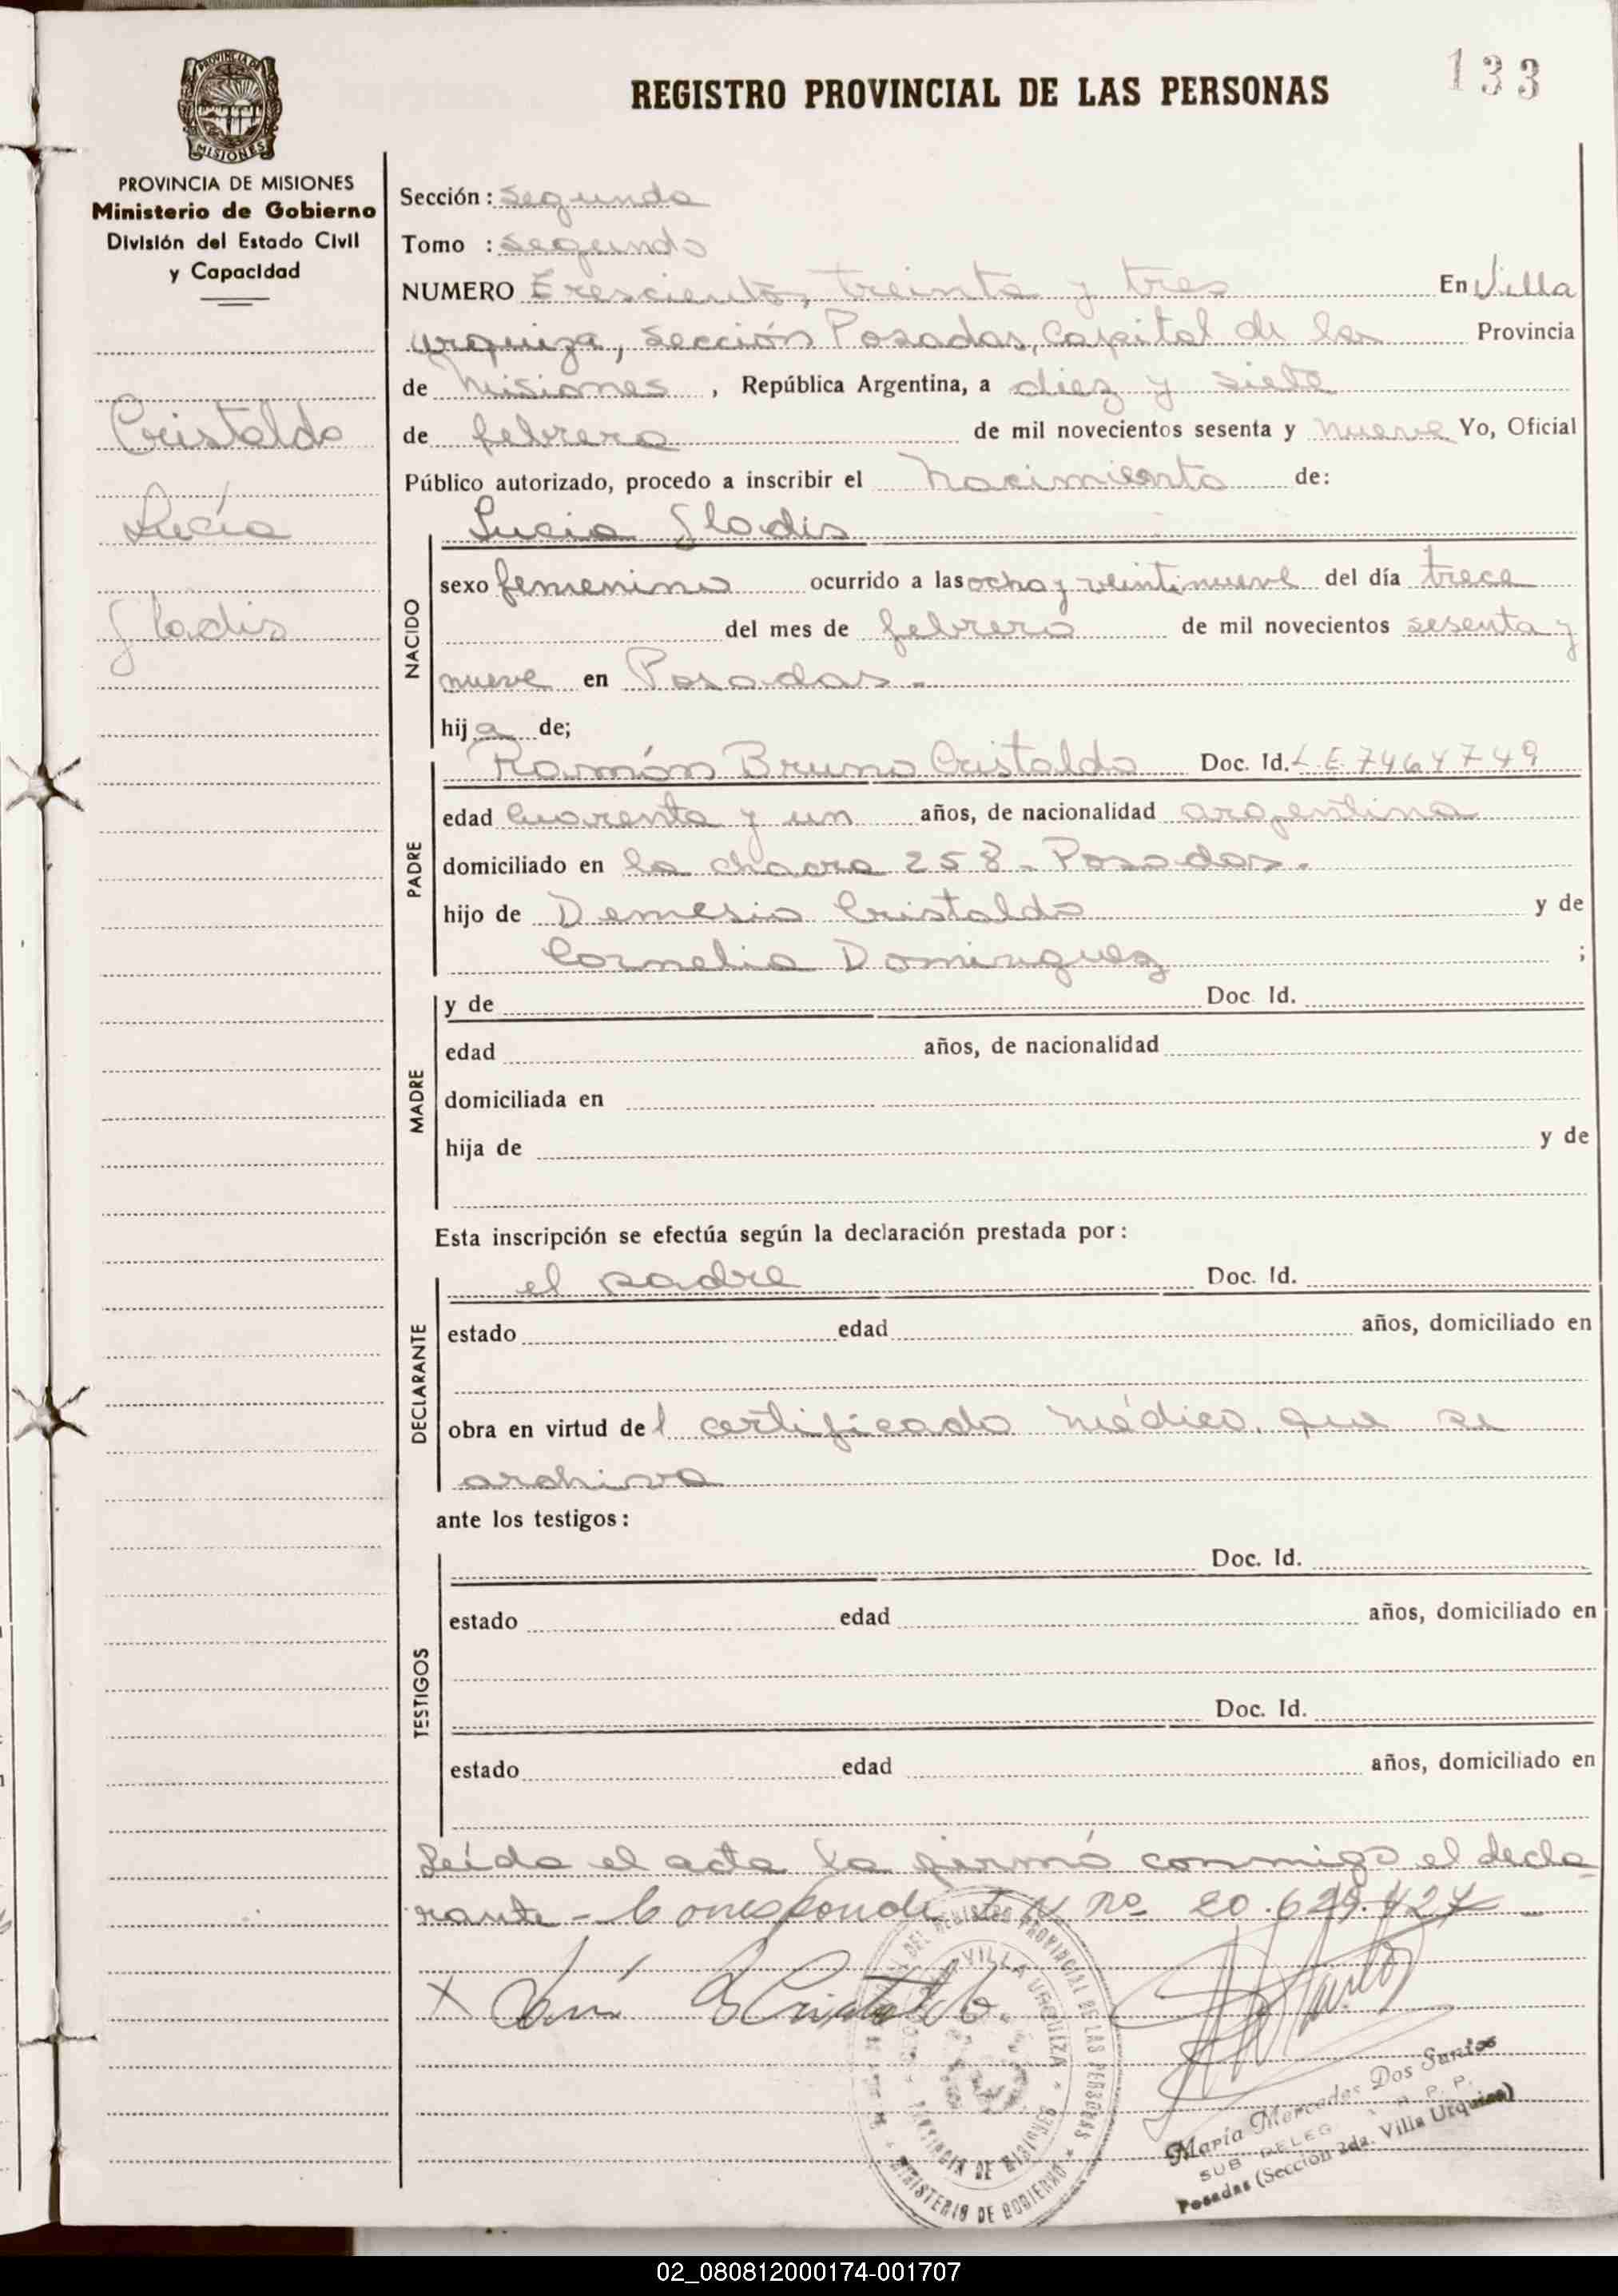 133
REGISTRO PROVINCIAL DE LAS PERSONAS
PROVINCIA DE MISIONES
MISIONES
PROVINCIA DE MISIONES
Ministerio de Gobierno
División del Estado Civil
y Capacidad
Cristaldo
Lucía
Gladis
Sección: Segunda
Tomo : Segundo
NUMERO Trescientos, treinta y tres En Villa
Urquiza, Sección Posadas, Capital de la Provincia
de Misiones, República Argentina, a diez y siete
de febrero de mil novecientos sesenta y nueve Yo, Oficial
Público autorizado, procedo a inscribir el Nacimiento de:
NACIDO
Lucia Gladis
sexo femenino ocurrido a las ocho y veintinueve del día trece
del mes de febrero de mil novecientos sesenta y
nueve en Posadas.-
hija de;
PADRE
Ramón Bruno Cristaldo Doc. Id. L.E. 7464749
edad Cuarenta y un años, de nacionalidad argentina
domiciliado en la chacra 258 - Posadas.
hijo de Demesio Cristaldo y de
Cornelia Dominguez ;
MADRE
y de Doc. Id.
edad años, de nacionalidad
domiciliada en
hija de y de
Esta inscripción se efectúa según la declaración prestada por:
DECLARANTE
el padre Doc. Id.
estado edad años, domiciliado en
obra en virtud del certificado médico, que se
archiva
ante los testigos:
TESTIGOS
Doc. Id.
estado edad años, domiciliado en
Doc. Id.
estado edad años, domiciliado en
Leída el acta la firmó conmigo el decla
rante - Corresponde N nº 20.629.427 -
X Cristaldo
DEL REGISTRO PROVINCIAL DE LAS PERSONAS
VILLA URQUIZA
PROVINCIA DE MISIONES
MINISTERIO DE GOBIERNO
María Mercedes Dos Santos
SUB DELEG R. P. P.
Posadas (Sección 2da. Villa Urquiza)
02_080812000174-001707